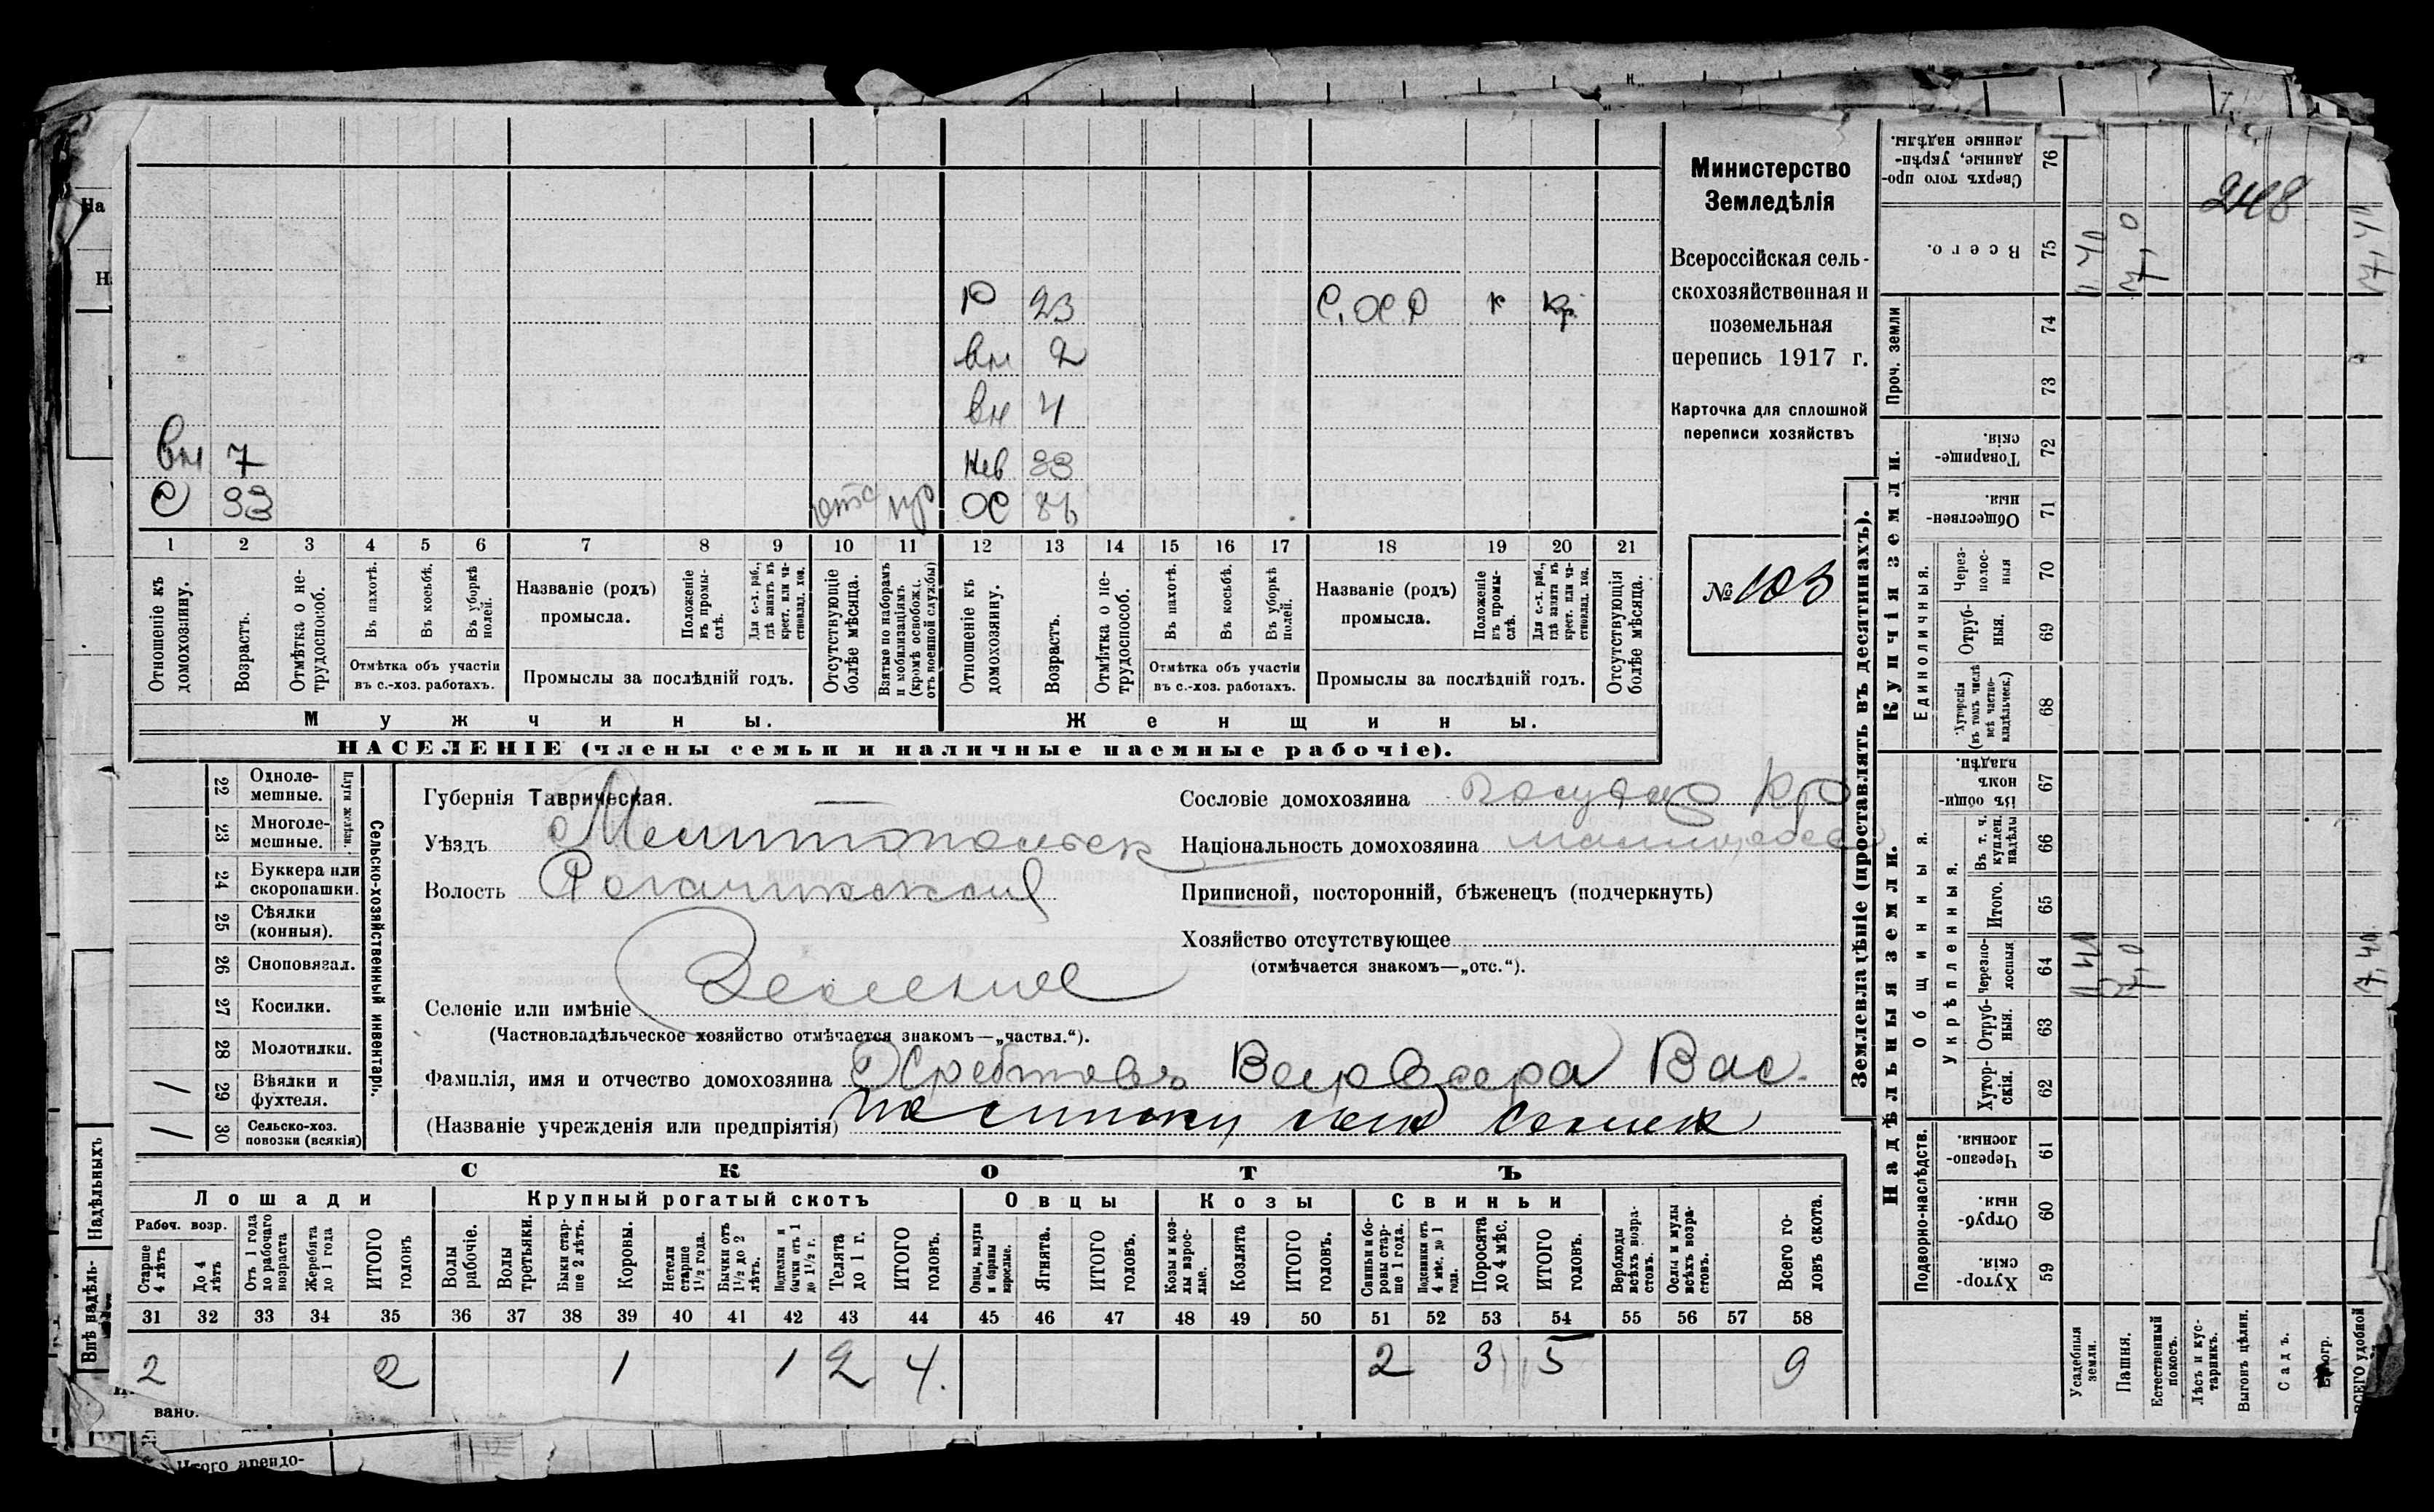 248
Министерство
Земледѣлія
Всероссійская сель-
скохозяйственная и
поземельная
перепись 1917 г.
Карточка для сплошной
переписи хозяйствъ
№ 103
Р 23 С.ОС.Р к Кр.
вн 2
вн 4
вн 7 Нев 33
С 33 отс пр ОС 86
1 2 3 4 5 6 7 8 9 10 11 12 13 14 15 16 17 18 19 20 21
Отношеніе къ домохозяину.
Возрастъ.
Отмѣтка о не-трудоспособ.
Въ пахотѣ.
Въ косьбѣ.
Въ уборкѣ полей.
Отмѣтка объ участіи
въ с.-хоз. работахъ.
Названіе (родъ)
промысла.
Положеніе въ промы-слѣ.
Для с.-х. раб., гдѣ занятъ въ крест. или ча-стновлад. хоз.
Промыслы за послѣдній годъ.
Отсутствующіе болѣе мѣсяца.
Взятые по наборамъ и мобилизаціямъ (кромѣ освобожд. отъ военной службы)
Отношеніе къ домохозяину.
Возрастъ.
Отмѣтка о не-трудоспособ.
Въ пахотѣ.
Въ косьбѣ.
Въ уборкѣ полей.
Отмѣтка объ участіи
въ с.-хоз. работахъ.
Названіе (родъ)
промысла.
Положеніе въ промы-слѣ.
Для с.-х. раб., гдѣ занята въ крест. или ча-стновлад. хоз.
Промыслы за послѣдній годъ.
Отсутствующія болѣе мѣсяца.
Мужчины. Женщины.
НАСЕЛЕНІЕ (члены семьи и наличные наемные рабочіе).
22 Одноле-мешные.
23 Многоле-мешные.
Плуги желѣзн.
24 Буккера или скоропашки.
25 Сѣялки (конныя).
26 Сноповязал.
27 Косилки.
28 Молотилки.
1 29 Вѣялки и фухтеля.
1 30 Сельско-хоз. повозки (всякія)
Сельско-хозяйственный инвентарь.
Губернія Таврическая.
Уѣздъ Мелитопольск
Волость Рогачикская
Селеніе или имѣніе Зеление
(Частновладѣльческое хозяйство отмѣчается знакомъ—„частвл.“).
Фамилія, имя и отчество домохозяина Хребтовъ Варвара Вас.
(Названіе учрежденія или предпріятія)
Сословіе домохозяина Государ Кр
Національность домохозяина малоросс
Приписной, посторонній, бѣженецъ (подчеркнуть)
Хозяйство отсутствующее
(отмѣчается знакомъ—„отс.“).
СКОТЪ
Лошади Крупный рогатый скотъ Овцы Козы Свиньи
Рабоч. возр.
Старше 4 лѣтъ
До 4 лѣтъ
Отъ 1 года до рабочаго возраста
Жеребята до 1 года
ИТОГО головъ
Волы рабочіе.
Волы третьяки.
Быки стар-ше 2 лѣтъ.
Коровы.
Нетели старше 1½ года.
Бычки отъ 1½ до 2 лѣтъ.
Подтелки и бычки отъ 1 до 1½ г.
Телята до 1 г.
ИТОГО головъ.
Овцы, валухи и бараны взрослые.
Ягнята.
ИТОГО головъ.
Козы и коз-лы взрос-лые.
Козлята
ИТОГО головъ.
Свиньи и бо-ровы стар-ше 1 года.
Подсвинки отъ 4 мѣс. до 1 года.
Поросята до 4 мѣс.
ИТОГО головъ.
Верблюды всѣхъ возра-стовъ.
Ослы и мулы всѣхъ возра-стовъ.
Всего го-ловъ скота.
31 32 33 34 35 36 37 38 39 40 41 42 43 44 45 46 47 48 49 50 51 52 53 54 55 56 57 58
2 2 1 1 2 4. 2 3 5 9
Землевладѣніе (проставлять въ десятинахъ).
Купчія земли.
Надѣльныя земли.
Сверхъ того про-данные, укрѣп-ленные надѣлы. 76
Всего. 75 1,40 7,0
Проч. земли 74 73
Товарище-скія. 72
Обществен-ныя. 71
Единоличныя.
Через-полос-ныя 70
Отруб-ныя. 69
Хуторскія (въ томъ числѣ всѣ частно-владѣльческ.) 68
Общинныя.
Въ общин-номъ владѣн. 67
Укрѣпленныя.
Въ т. ч. куплен. надѣлы 66
Итого. 65
Черезпо-лосныя 64 1,40 7,0 7,40
Отруб-ныя. 63
Хутор-скія. 62
Подворно-наслѣдств.
Черезпо-лосныя. 61
Отруб-ныя. 60
Хутор-скія. 59
Усадебныя земли.
Пашня.
Естественный покосъ.
Лѣсъ и кус-тарникъ.
Выгонъ цѣлин.
Садъ.
ВСЕГО удобной
Надѣльныхъ
Внѣ надѣль-
вано.
Итого арендо-